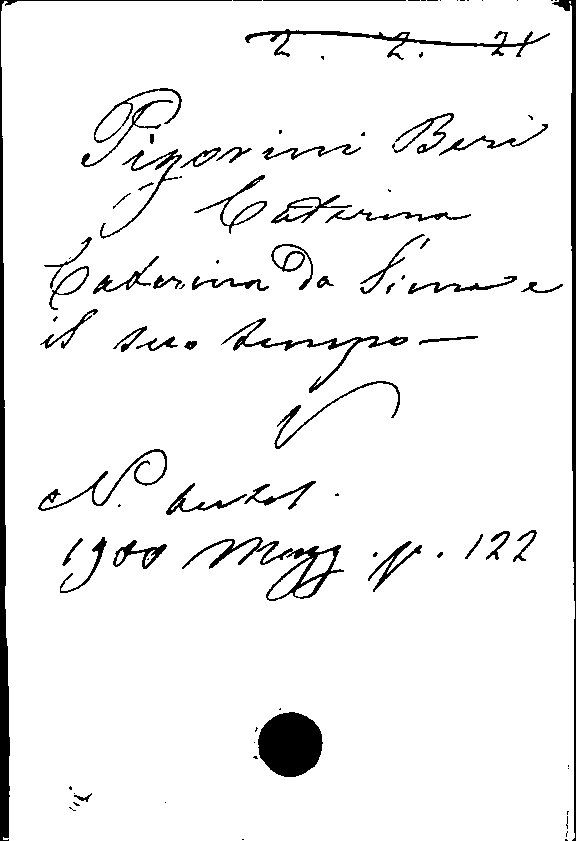 2. 2. 21
Pigorini Beri
Caterina
Caterina da Siena e
il suo tempo —
N. Antol.
1900 Magg. p. 122